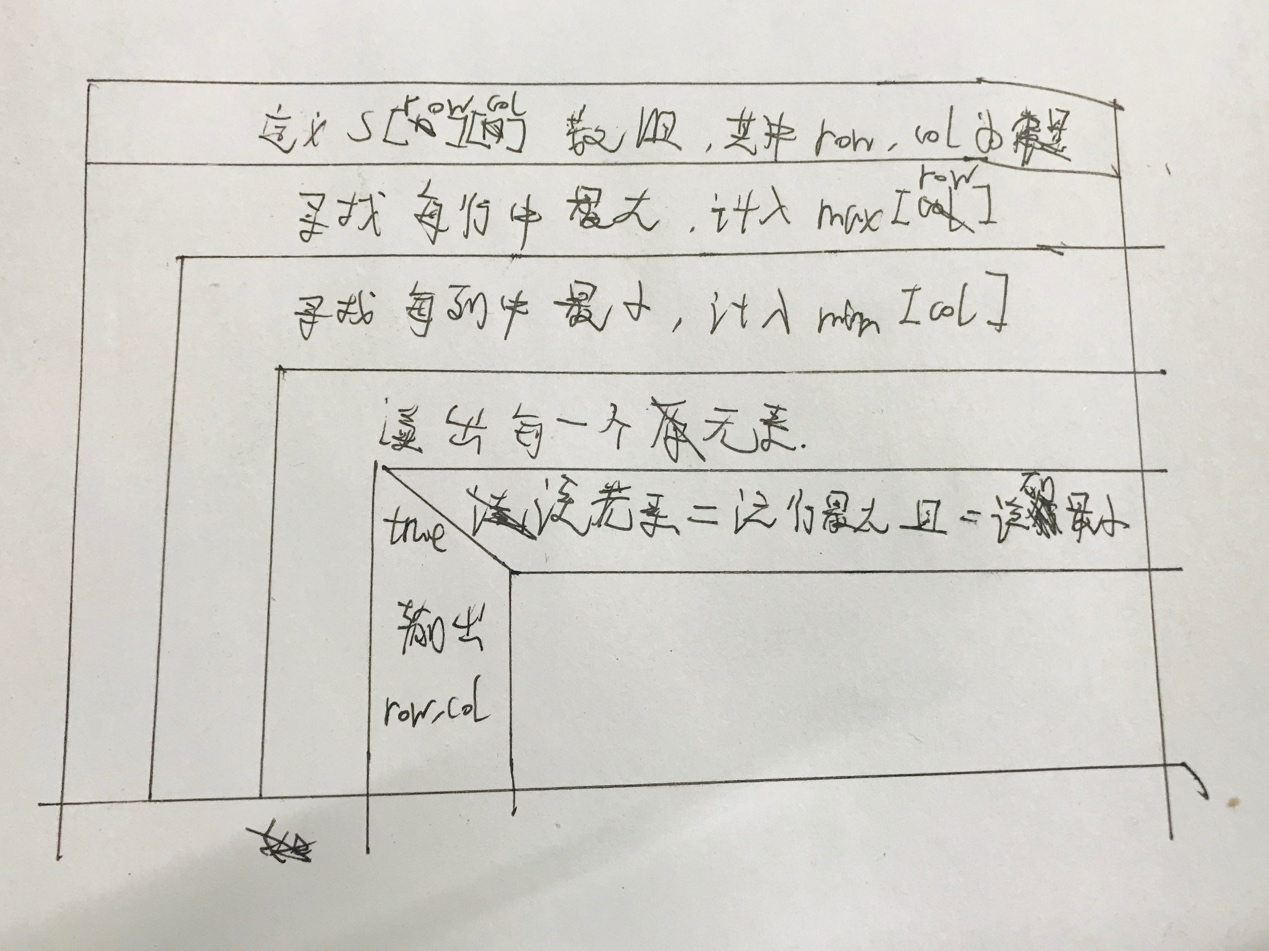 定义 S[row][col] 数组,其中 row, col 为常量
寻找每行中最大,计入 max[row]
寻找每列中最小,计入 min [col]
出每一个元素.
true 该元素=该行最大且=该列最小
输出
row,col